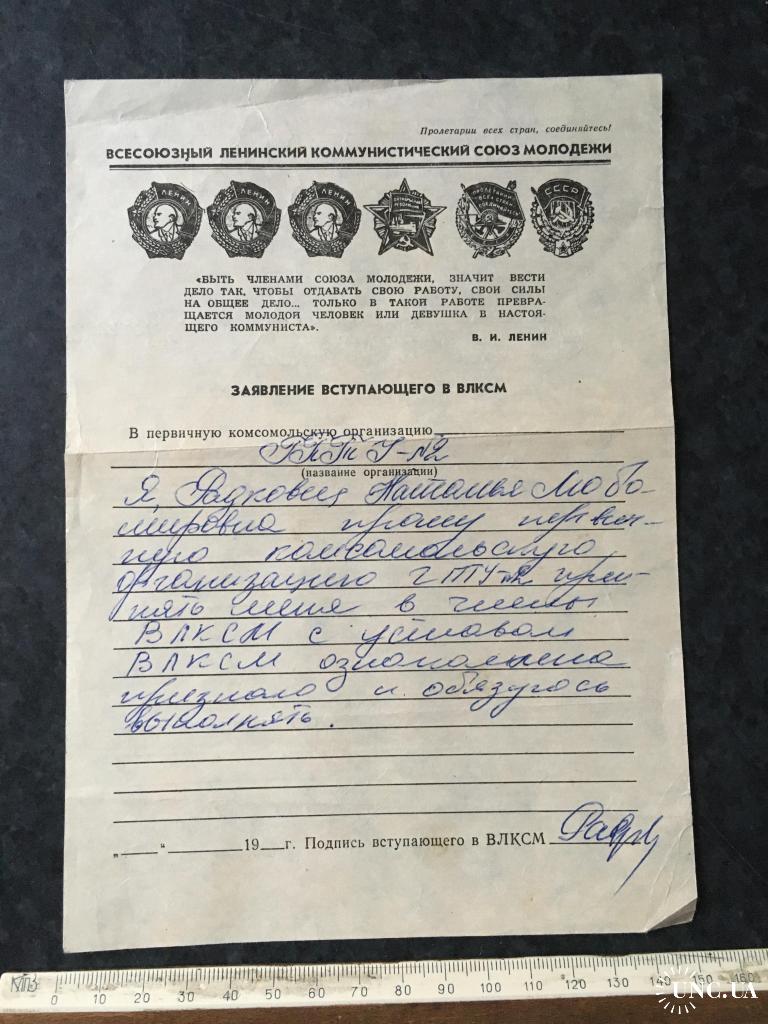 Пролетарии всех стран, соединяйтесь!
ВСЕСОЮЗНЫЙ ЛЕНИНСКИЙ КОММУНИСТИЧЕСКИЙ СОЮЗ МОЛОДЕЖИ
ЛЕНИН ЛЕНИН ЛЕНИН СССР
«БЫТЬ ЧЛЕНАМИ СОЮЗА МОЛОДЕЖИ, ЗНАЧИТ ВЕСТИ
ДЕЛО ТАК, ЧТОБЫ ОТДАВАТЬ СВОЮ РАБОТУ, СВОИ СИЛЫ
НА ОБЩЕЕ ДЕЛО... ТОЛЬКО В ТАКОЙ РАБОТЕ ПРЕВРА-
ЩАЕТСЯ МОЛОДОЙ ЧЕЛОВЕК ИЛИ ДЕВУШКА В НАСТОЯ-
ЩЕГО КОММУНИСТА».
В. И. ЛЕНИН
ЗАЯВЛЕНИЕ ВСТУПАЮЩЕГО В ВЛКСМ
В первичную комсомольскую организацию
№2
(название организации)
Я, Наталья Любо-
мировна прошу первич-
ную комсомольскую
организацию ГПТУ №2 при-
нять меня в члены
ВЛКСМ с уставом
ВЛКСМ ознакомлена
признаю и обязуюсь
выполнять.
„ “ 19 г. Подпись вступающего в ВЛКСМ
0 10 20 30 40 50 60 70 80 90 100 110 120 130 140 150 160
UNC.UA